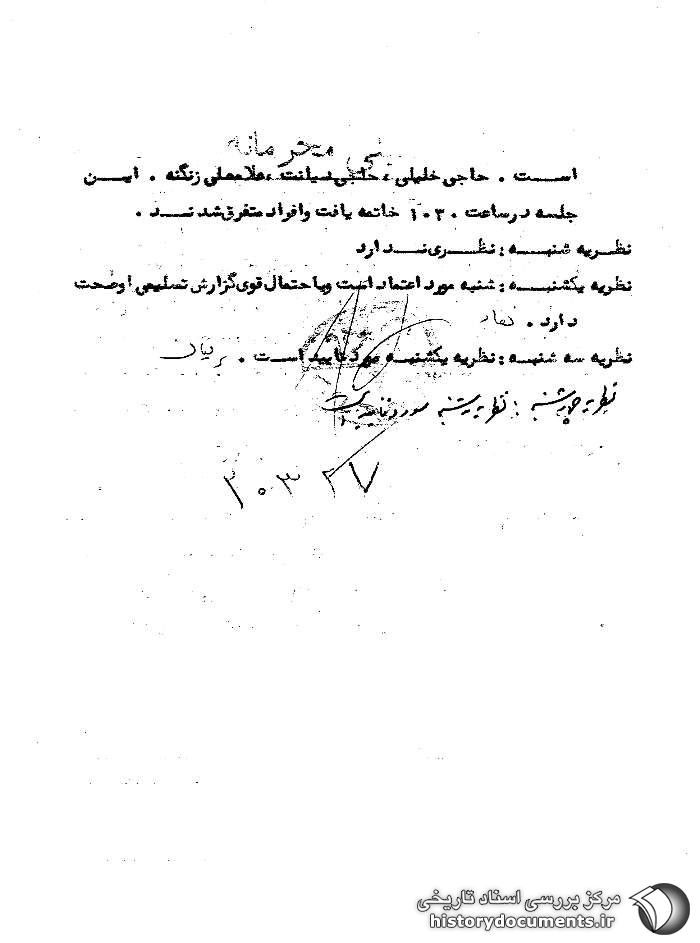 خیلی محرمانه
است . حاجی خلیلی ، حاجی دیانت ، غلامعلی زنگنه . این
جلسه در ساعت ۱۰۳۰ خاتمه یافت و افراد متفرق شدند .
نظریه شنبه : نظری ندارد
نظریه یکشنبه : شنبه مورد اعتماد است و با احتمال قوی گزارش تسلیمی او صحت
دارد .
نظریه سه شنبه : نظریه یکشنبه مورد تایید است .
نظریه چهارشنبه : نظریه سه‌شنبه مورد تائید است
مرکز بررسی اسناد تاریخی
historydocuments.ir